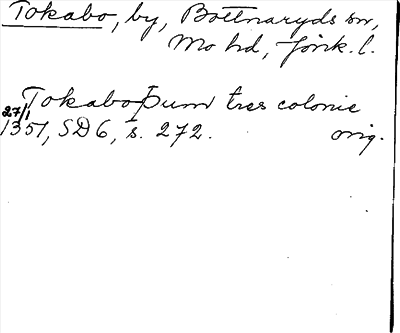 Tokabo, by, Bottnaryds sn,
Mo hd, Jönk. l.
Tokaboþum tres colonie
27/1 1351, SD 6, s. 272. orig.